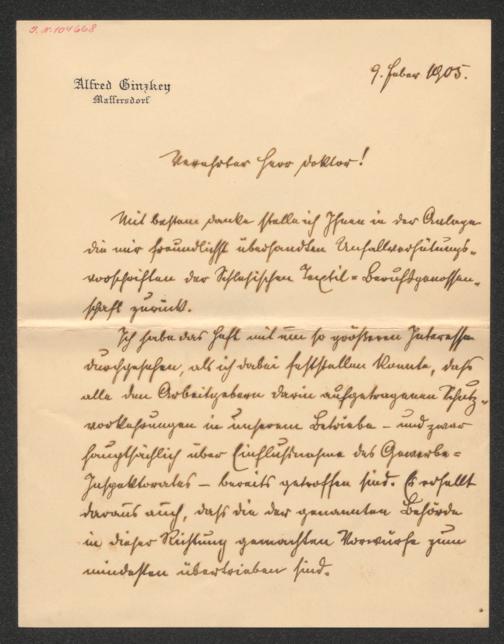 J. N. 104668
9. Feber 1905.
Alfred Ginzkey
Maffersdorf
Verehrter Herr Doktor!
Mit bestem Danke stelle ich Ihnen in der Anlage
die mir freundlichst übersandten Unfallverhütungs-
vorschriften der Schlesischen Textil-Berufsgenossen-
schaft zurück.
Ich habe das Heft mit um so größerem Interesse
durchgesehen, als ich dabei feststellen konnte, dass
alle den Arbeitgebern darin aufgetragenen Schutz-
vorkehrungen in unserem Betriebe – und zwar
hauptsächlich über Einflußnahme des Gewerbe-
Inspektorates – bereits getroffen sind. Es erhellt
daraus auch, dass die der genannten Behörde
in dieser Richtung gemachten Vorwürfe zum
mindesten übertrieben sind.